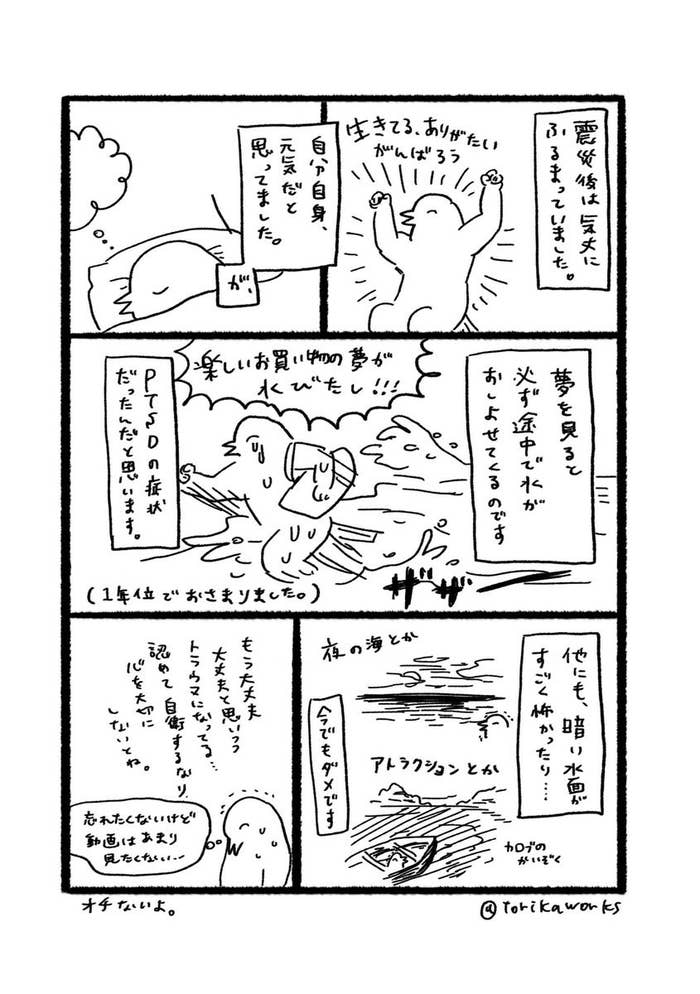 震災後は気丈に
ふるまっていました。
生きてる、ありがたい
がんばろう
自分自身、
元気だと
思ってました。
が、
夢を見ると
必ず途中で水が
おしよせてくるのです
楽しいお買い物の夢が
水びたし!!!
ザザー
PTSDの症状
だったんだと思います。
(1年位でおさまりました。)
他にも、暗い水面が
すごく怖かったり……
夜の海とか
アトラクションとか
カリブの
かいぞく
今でもダメです
もう大丈夫
大丈夫と思いつつ
トラウマになってる…
認めて自衛するなり
心を大切に
しないとね。
忘れたくないけど
動画はあまり
見たくない…
オチないよ。
@torikaworks